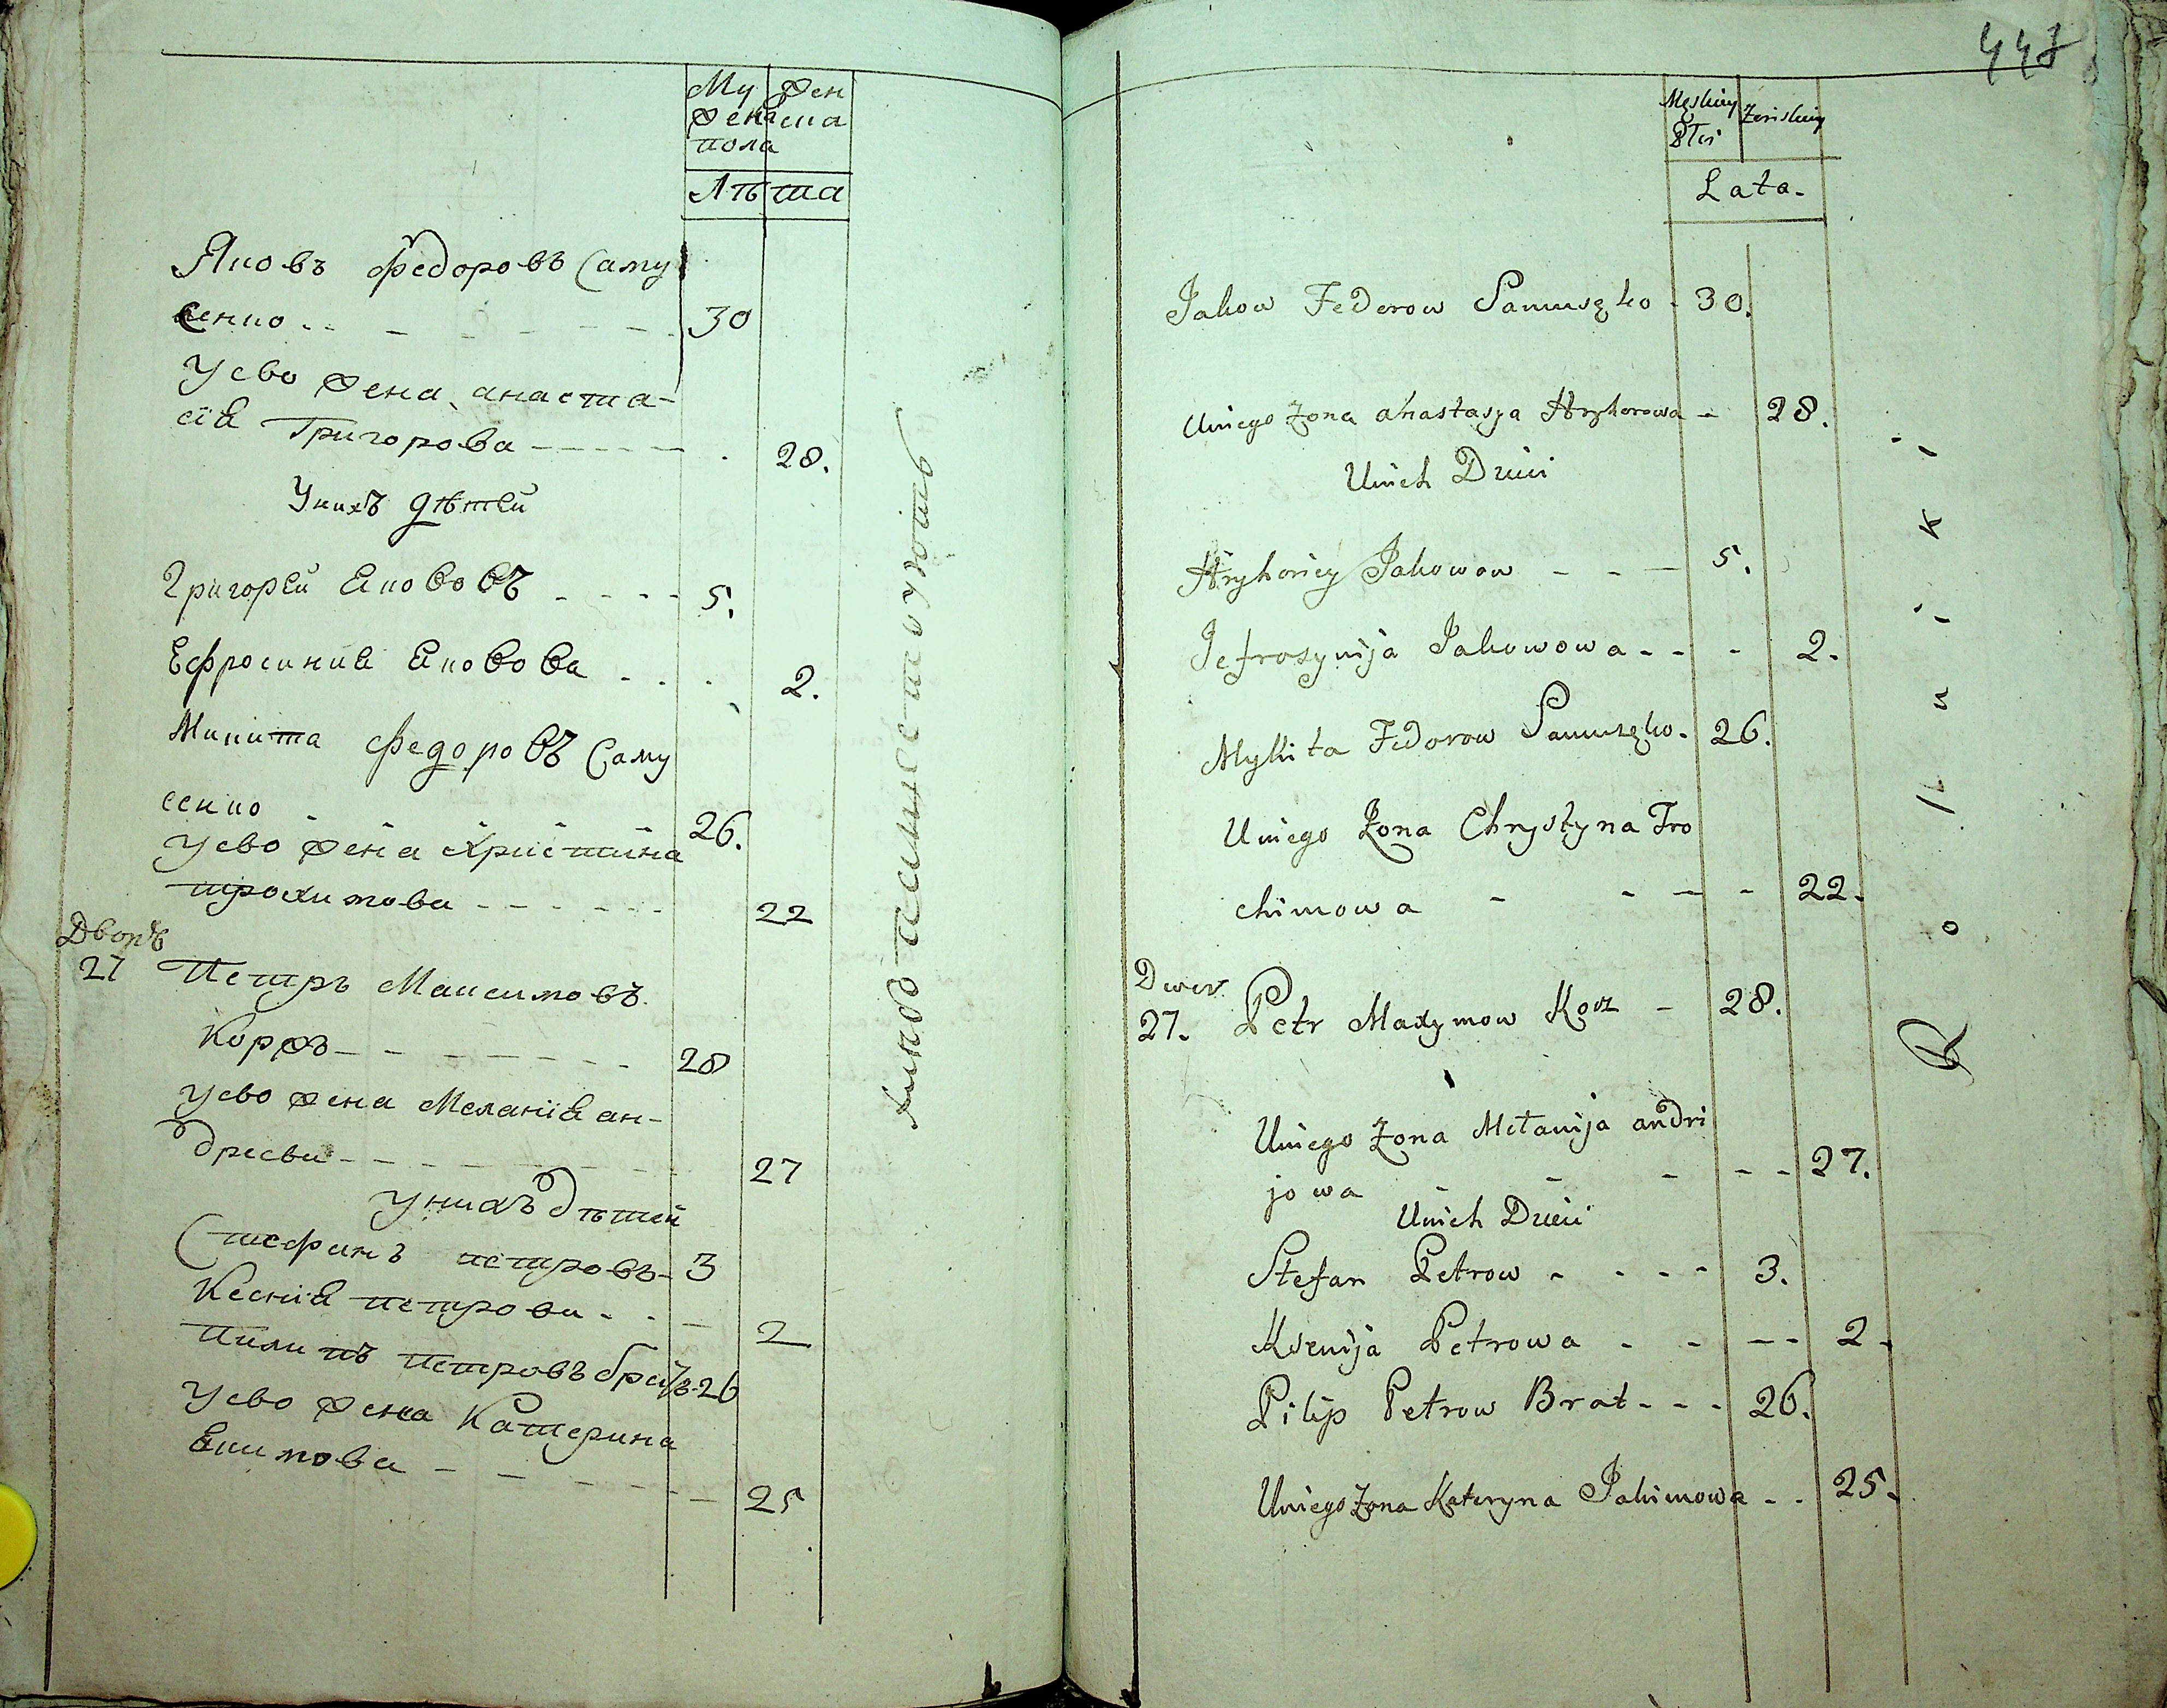 Му жен
жеска ска
пола
Лѣта
Яковъ Федоровъ Саму
сенко
30
У ево жена анаста-
сія Григорова
28.
У нихъ дѣтей
Григорей Якововъ
5.
Ефросиния Яковова
2.
Микита Федоровъ Саму
сенко
26.
У ево жена Христина
трохимова
22
Дворъ
27 Петръ Максимовъ
Коржъ
28
У ево жена Меланія ан-
дреева
27
У нихъ дѣтей
Стефанъ петровъ 3
Ксенія петрова
2
Пилипъ петровъ братъ 26
У ево жена Катерина
Якимова
25
447
Męskiey Żeńskiey
Płci
Lata.
Jakow Fedorow Samusęko 30.
U niego Żona Anastasya Hryhorowa 28.
U nich Dzieci
Hryhoriey Jakowow 5.
Jefrosynija Jakowowa 2.
Mykita Fedorow Samusęko. 26.
U niego Żona Chrystyna Tro
chimowa 22.
Dwor
27. Petr Maxymow Korz 28.
U niego Żona Mełanija andri
jowa 27.
U nich Dzieci
Stefan Petrow 3.
Ksenija Petrowa 2.
Pilip Petrow Brat 26.
U niego Żona Kateryna Jakimowa 25.
Rolniki